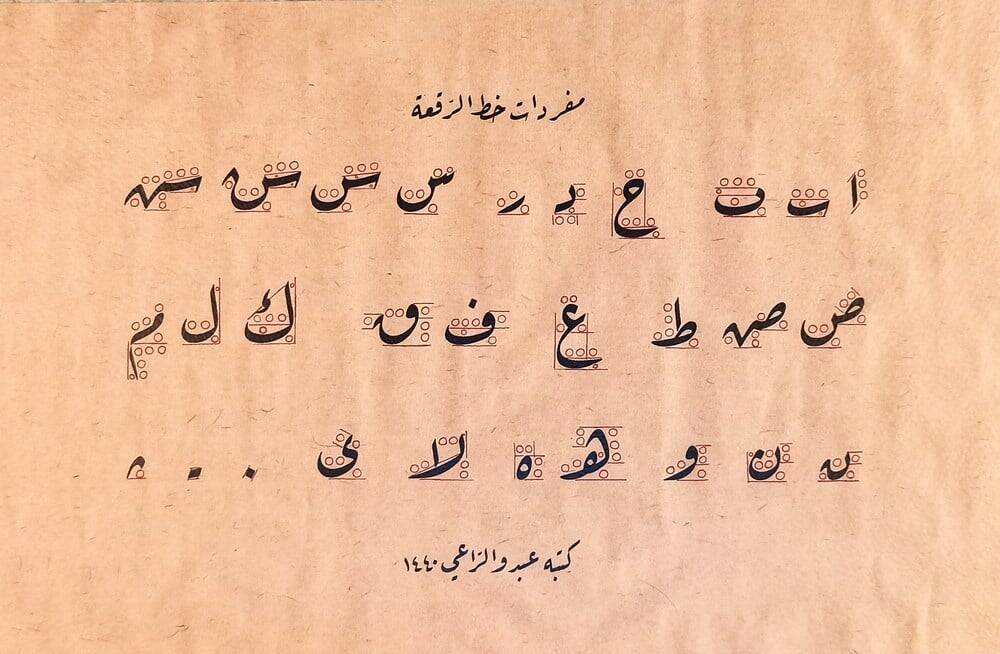 مفردات خط الرقعة
ا ب ب ح د ر س س س س
ص ص ط ع ف ق ك ل م
ن ن و ه ه لا ى
كتبه عبدو الراعي ١٤٤٠